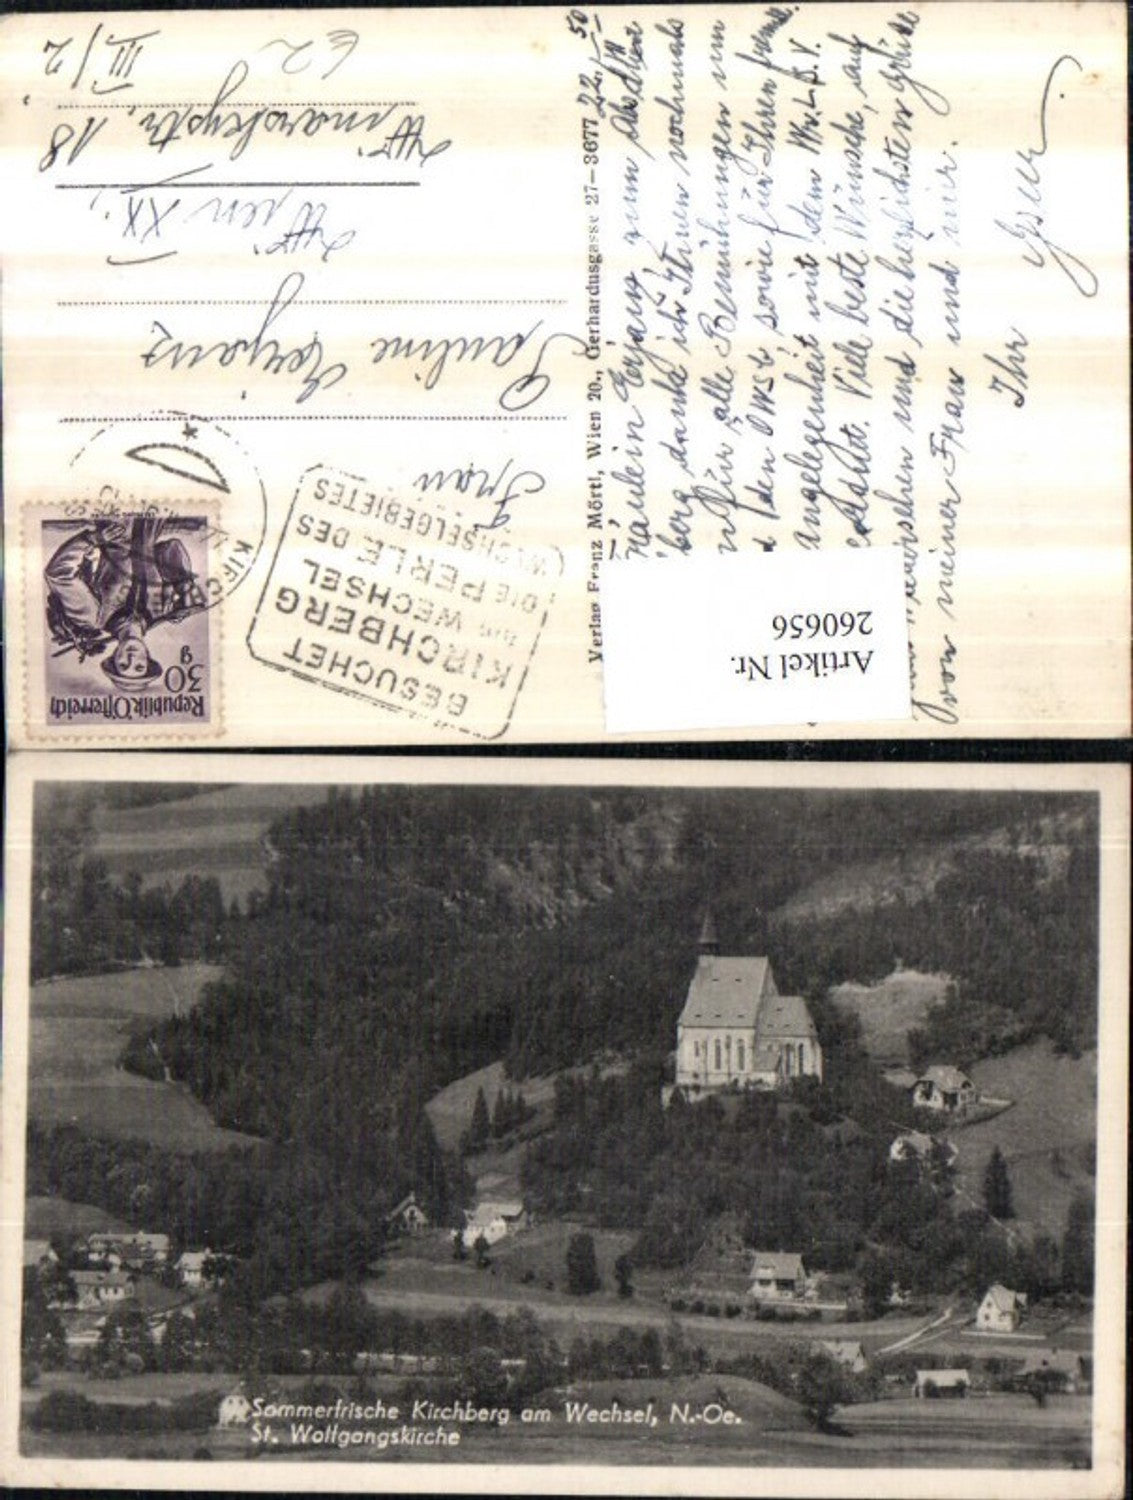 Republik Österreich
30
g
KIRCHBERG
BESUCHET
KIRCHBERG
AM WECHSEL
DIE PERLE DES
WECHSELGEBIETES
Frau
Pauline
Wien XX.,
Winarskystr. 18
III/2
62
Verlag Franz Mörtl, Wien 20., Gerhardusgasse 27-3677
22.
50
Fräulein zum
danke ich Ihnen nochmals
für alle Bemühungen um
den sowie für Ihren
angelegenheit mit dem
Viele beste Wünsche, auf
und die herzlichsten Grüße
von meiner Frau und mir.
Ihr
Artikel Nr.
260656
Sommerfrische Kirchberg am Wechsel, N.-Oe.
St. Wolfgangskirche